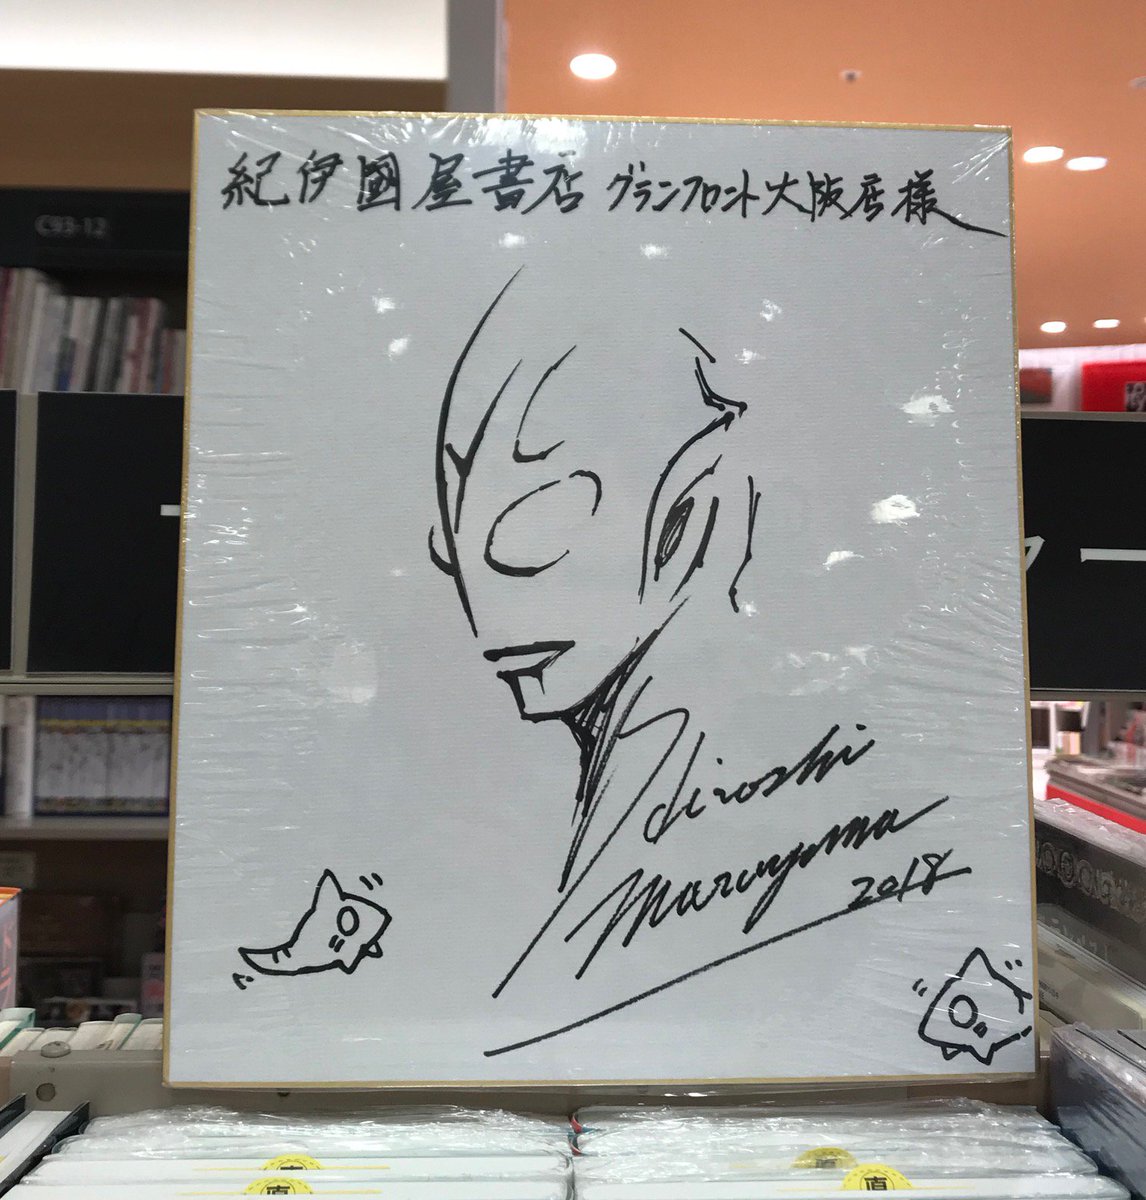 紀伊國屋書店 グランフロント大阪店様
C93-12
Hiroshi
Maruyama
2018
直
直
直